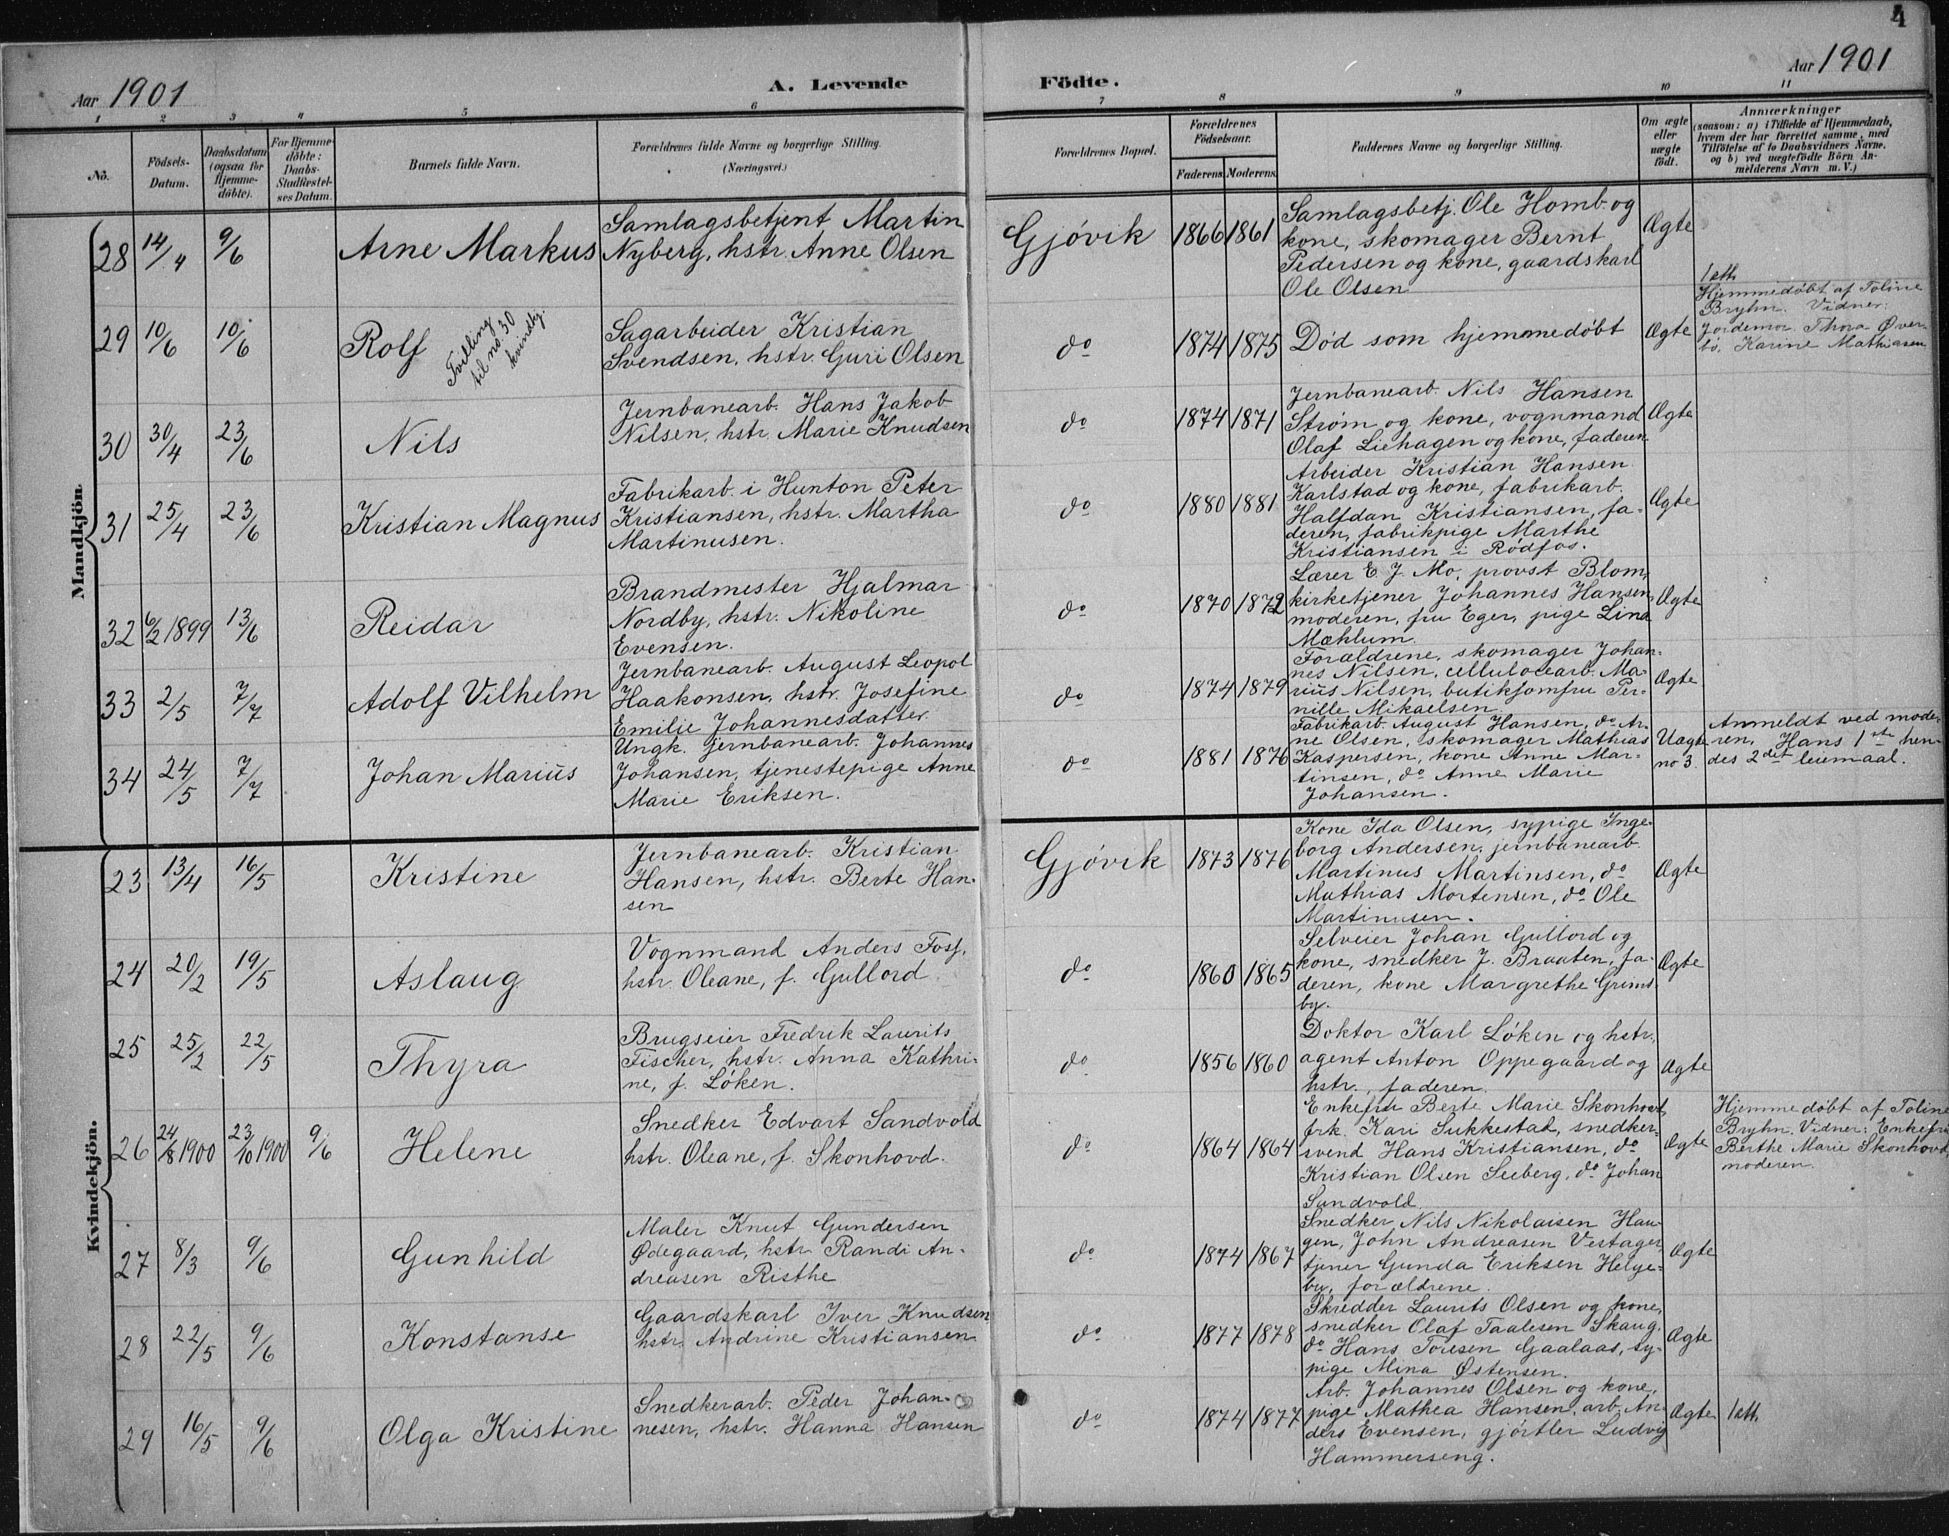 4
Aar 1901
A. Levende
Födte.
Aar 1901
1 2 3 4 5 6 7 8 9 10 11
No.
Födsels-
Datum.
Daabsdatum
(ogsaa for
Hjemme-
döbte).
For Hjemme-
döbte:
Daabs-
Stadfæstel-
ses Datum.
Barnets fulde Navn.
Forældrenes fulde Navne og borgerlige Stilling.
(Næringsvei.)
Forældrenes Bopæl.
Forældrenes
Födselsaar.
Faderens. Moderens.
Faddernes Navne og borgerlige Stilling.
Om ægte
eller
uægte
födt.
Anmærkninger
(saasom: a) i Tilfælde af Hjemmedaab,
hvem der har forrettet samme, med
Tilföielse af to Daabsvidners Navne,
og b) ved uægtefödte Börn An-
melderens Navn m. V.)
Mandkjön.
28 14/4 9/6
Arne Markus
Samlagsbetjent Martin
Nyberg, hstr. Anne Olsen
Gjövik
1866 1861
Samlagsbetj. Ole Homb. og
kone, skomager Bernt
Pedersen og kone, gaardskarl
Ole Olsen
Ægte
29 10/6 10/6
Rolf
Tvilling
til no. 30
kvindkj.
Sagarbeider Kristian
Svendsen, hstr. Guri Olsen
do
1874 1875
Död som hjemmedöbt
Ægte
1 att.
Hjemmedöbt af Toline
Bryhn. Vidner:
Jordemor Thora Över-
bö, Karine Mathiasen
30 30/4 23/6
Nils
Jernbanearb. Hans Jakob
Nilsen, hstr. Marie Knudsen
do
1874 1871
Jernbanearb. Nils Hansen
Ström og kone, vognmand
Olaf Liehagen og kone, faderen
Ægte
31 25/4 23/6
Kristian Magnus
Fabrikarb. i Hunton Peter
Kristiansen, hstr. Martha
Martinusen.
do
1880 1881
Arbeider Kristian Hansen
Karlstad og kone, fabrikarb.
Halfdan Kristiansen, fa-
deren, fabrikpige Marthe
Kristiansen i Rödfos.
Ægte
32 6/2 1899 13/6
Reidar
Brandmester Hjalmar
Nordby, hstr. Nikoline
Evensen.
do
1870 1872
Lærer E J. Mo, provst Blom,
kirketjener Johannes Hansen,
moderen, fru Eger, pige Lina
Mæhlum.
Ægte
33 2/5 7/7
Adolf Vilhelm
Jernbanearb. August Leopol
Haakonsen, hstr. Josefine
Emilie Johannesdatter.
do
1874 1879
Forældrene, skomager Johan-
nes Nilsen, cellulosearb. Ma-
rius Nilsen, butikjomfru Per-
nille Mikaelsen.
Ægte
34 24/5 7/7
Johan Marius
Ungk. jernbanearb. Johannes
Johansen, tjenestepige Anne
Marie Eriksen.
do
1881 1876
Fabrikarb. August Hansen, do Ar-
ne Olsen, skomager Mathias
Kaspersen, kone Anne Mar-
tinsen, do Anne Marie
Johansen.
Uægte
no 3.
Anmeldt ved mode-
ren. Hans 1ste hen-
des 2det leiemaal.
Kvindekjön.
23 13/4 16/5
Kristine
Jernbanearb. Kristian
Hansen, hstr. Berte Han-
sen
Gjövik
1873 1876
Kone Ida Olsen, sypige Inge-
borg Andersen, jernbanearb.
Martinus Martinsen, do
Mathias Mortensen, do Ole
Martinusen.
Ægte
24 20/2 19/5
Aslaug
Vognmand Anders Foss,
hstr. Oleane, f. Gullord
do
1860 1865
Selveier Johan Gullord og
kone, snedker J. Braaten, fa-
deren, kone Margrethe Grims-
by.
Ægte
25 25/2 22/5
Thyra
Brugseier Fredrik Laurits
Fischer, hstr. Anna Kathri-
ne, f. Löken.
do
1856 1860
Doktor Karl Löken og hstr.,
agent Anton Oppegaard og
hstr., faderen.
Ægte
26 24/8 1900 23/10 1900 9/6
Helene
Snedker Edvart Sandvold
hstr. Oleane, f. Skonhovd.
do
1864 1864
Enkefru Berte Marie Skonhovd,
frk. Kari Sukkestad, snedker-
svend Hans Kristiansen, do
Kristian Olsen Seeberg, do Johan
Sandvold.
Ægte
Hjemmedöbt af Toline
Bryhn. Vidner: Enkefru
Berthe Marie Skonhovd,
moderen.
27 8/3 9/6
Gunhild
Maler Knut Gundersen
Ödegaard, hstr. Randi An-
dreasen Risthe
do
1874 1867
Snedker Nils Nikolaisen Hau-
gen, John Andreasen Vestager,
tjener Gunda Eriksen Helge-
by, forældrene.
Ægte
28 22/5 9/6
Konstanse
Gaardskarl Iver Knudsen
hstr. Andrine Kristiansen
do
1877 1878
Skredder Laurits Olsen og kone,
snedker Olaf Taalesen Skaug,
do Hans Toresen Gaalaas, sy-
pige Mina Östensen.
Ægte
29 16/5 9/6
Olga Kristine
Snedkerarb. Peder Johan-
nesen, hstr. Hanna Hansen
do
1874 1877
Arb. Johannes Olsen og kone,
pige Mathea Hansen, arb. An-
ders Evensen, gjörtler Ludvig
Hammerseng.
Ægte
1 att.